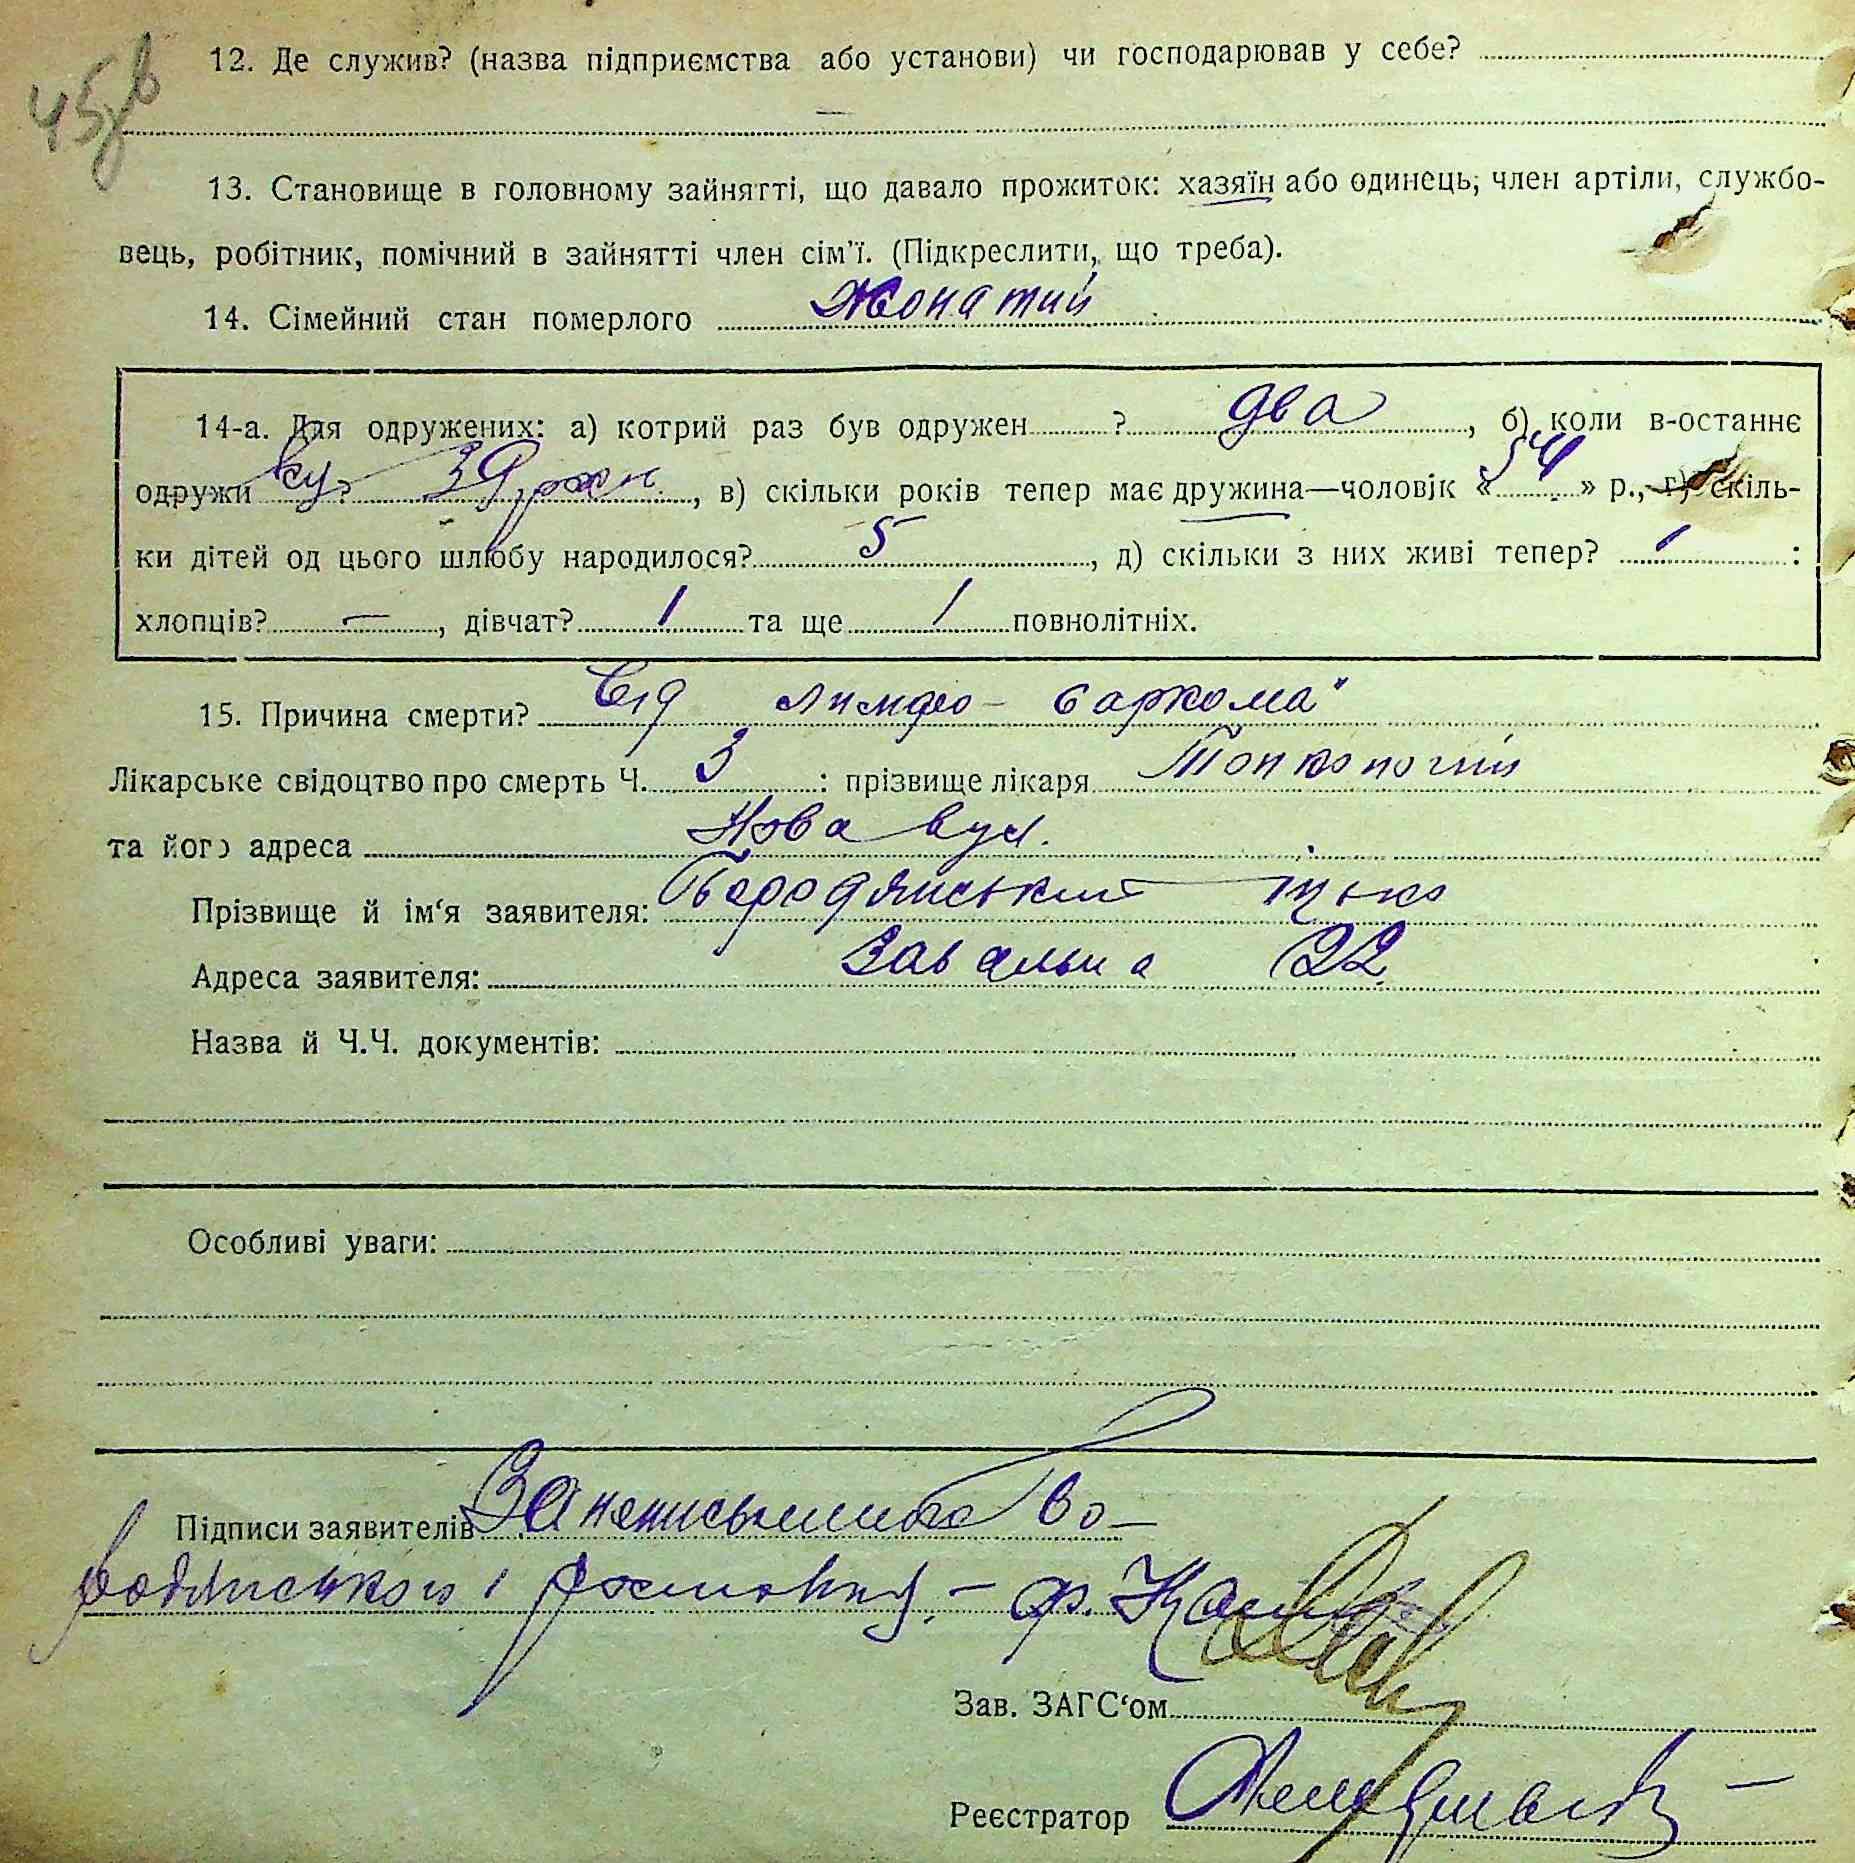 45
12. Де служив? (назва підприємства або установи) чи господарював у себе?
—
13. Становище в головному зайнятті, що давало прожиток: хазяїн або одинець, член артіли, службо-
вець, робітник, помічний в зайнятті член сім'ї. (Підкреслити, що треба).
14. Сімейний стан померлого Жонатий
14-а. Для одружених: а) котрий раз був одружен ? два, б) коли в-останнє
одружи ? 39, в) скільки років тепер має дружина—чоловік «54» р., г) скіль-
ки дітей од цього шлюбу народилося? 5, д) скільки з них живі тепер? 1 :
хлопців? —, дівчат? 1 та ще 1 повнолітніх.
15. Причина смерти? Від лимфо-саркома
Лікарське свідоцтво про смерть Ч. 3 : прізвище лікаря
та його адреса Нова вул.
Прізвище й ім'я заявителя: Бородянський
Адреса заявителя: Завальна 22
Назва й Ч.Ч. документів:
Особливі уваги:
Підписи заявителів За неписьменого Бо-
родянського і
Зав. ЗАГС'ом
Реєстратор